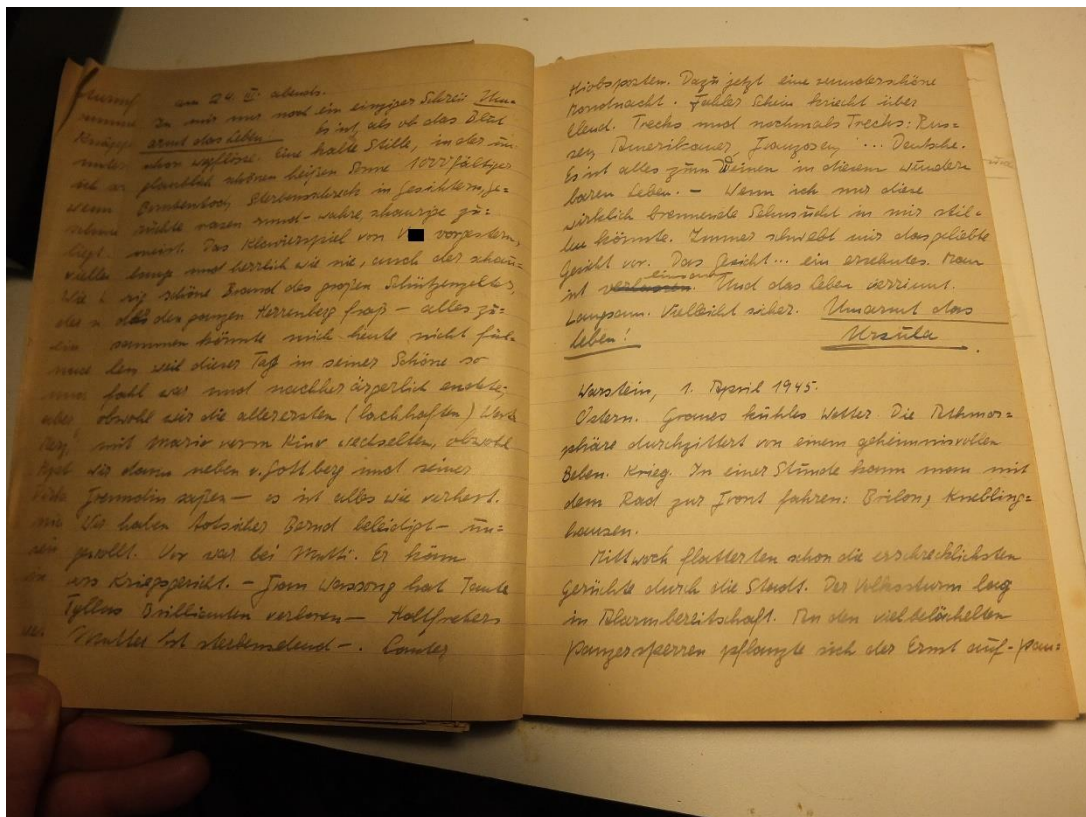 am 24. III abends.
In mir nur noch ein einziger Schrei: Um=
armt das Leben. Es ist, als ob das Blut
schon wegflösse. Eine kalte Stille, in der un=
glaublich schönen heißen Sonne 1000fältiger
Bombentod, Sterbensschreck in Gesichtern, Ge=
rüchte rasen rund – wahre, schaurige zu=
meist. Das Klavierspiel von V vorgestern,
lang und herrlich wie nie, auch der schau=
rig schöne Brand des großen Schützenzeltes,
das den ganzen Herrenberg fraß – alles zu=
sammen könnte mich heute nicht fül=
len weil dieser Tag in seiner Schöne so
fahl war und nachher ärgerlich endete;
obwohl wir die allerersten (lachhaften)
mit Mario vorm Kino wechselten, obwohl
wir dann neben v. Gottberg und seiner
Gemahlin saßen – es ist alles wie verhext.
Wir haben Bernd beleidigt – un=
gewollt. Uv war bei Mutti. Er kam
ins Kriegsgericht. – Frau hat Tante
Tyllas Brillianten verloren – Holtfreters
Mutter ist sterbenselend –. Lauter
Hiobsposten. Dazu jetzt eine wunderschöne
Mondnacht. Fahler Schein kriecht über
Elend. Trecks und nochmals Trecks: Rus=
sen, Amerikaner, Franzosen, ... Deutsche.
Es ist alles zum Weinen in diesem wunder=
baren Leben. – Wenn ich nur diese
wirklich brennende Sehnsucht in mir stil=
len könnte. Immer schwebt mir das geliebte
Gesicht vor. Das Gesicht... ein ersehntes. Man
ist verlassen einsam. Und das Leben verrinnt.
Langsam. Vielleicht sicher. Umarmt das
Leben! Ursula
Warstein, 1. April 1945.
Ostern. Graues kühles Wetter. Die Athmos=
phäre durchzittert von einem geheimnisvollen
Beben. Krieg. In einer Stunde kann man mit
dem Rad zur Front fahren: Brilon, Knebling=
hausen.
Mittwoch flatterten schon die erschrecklichsten
Gerüchte durch die Stadt. Der Volkssturm lag
in Alarmbereitschaft. An den vielbelächelten
Panzersperren pflanzte sich der Ernst auf – pan=